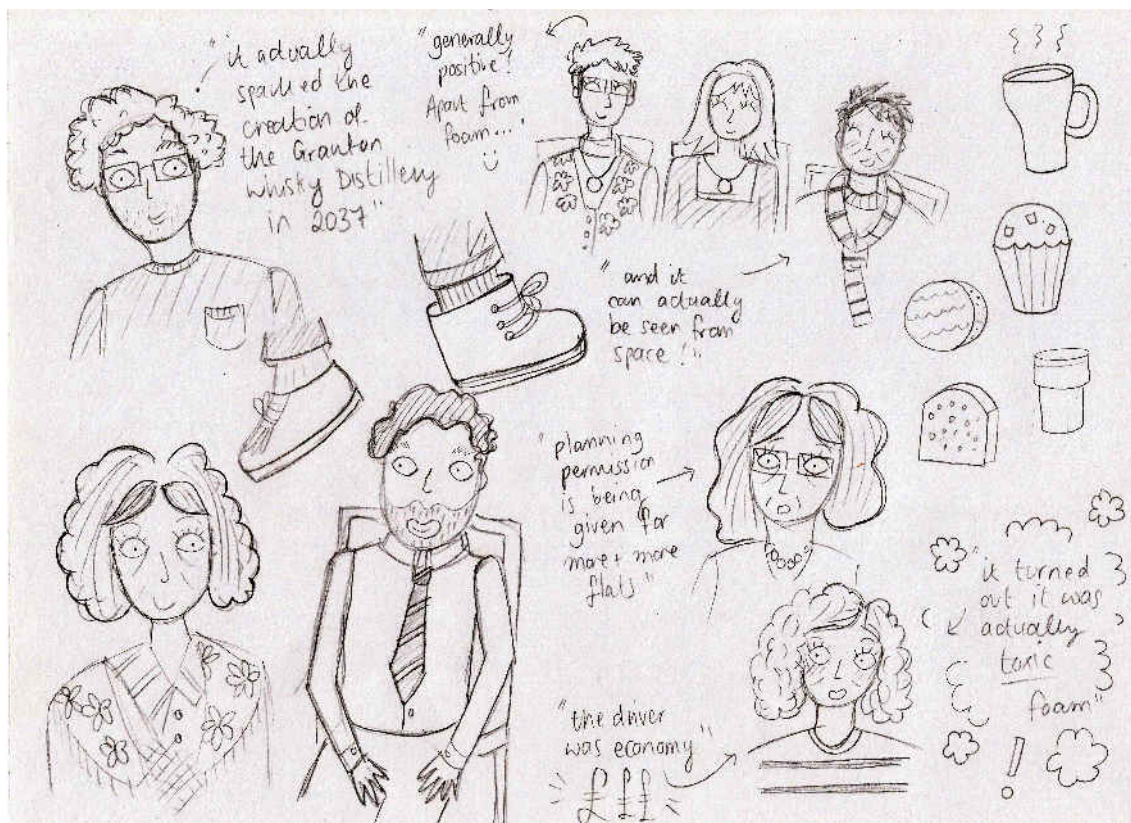 "it actually
sparked the
creation of
the Granton
whisky Distillery
in 2037"
"generally
positive!
Apart from
foam...."
"and it
can actually
be seen from
space!"
"planning
permission
is being
given for
more + more
flats"
"the driver
was economy"
£ £ £
"it turned
out it was
actually
toxic
foam"
!